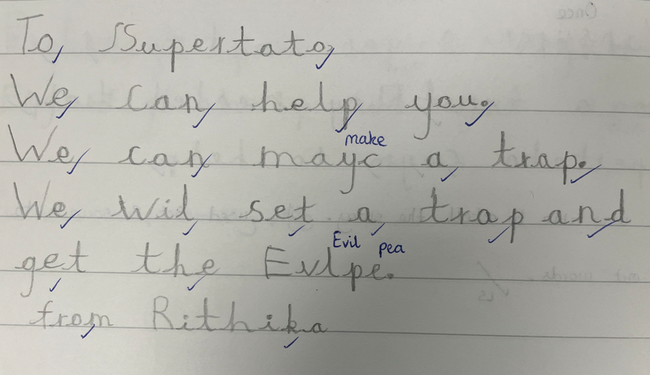 To, Supertato,
We can help you.
make
We can mayc a trap.
We wil set a trap and
Evil pea
get the Evlpe.
from Rithika